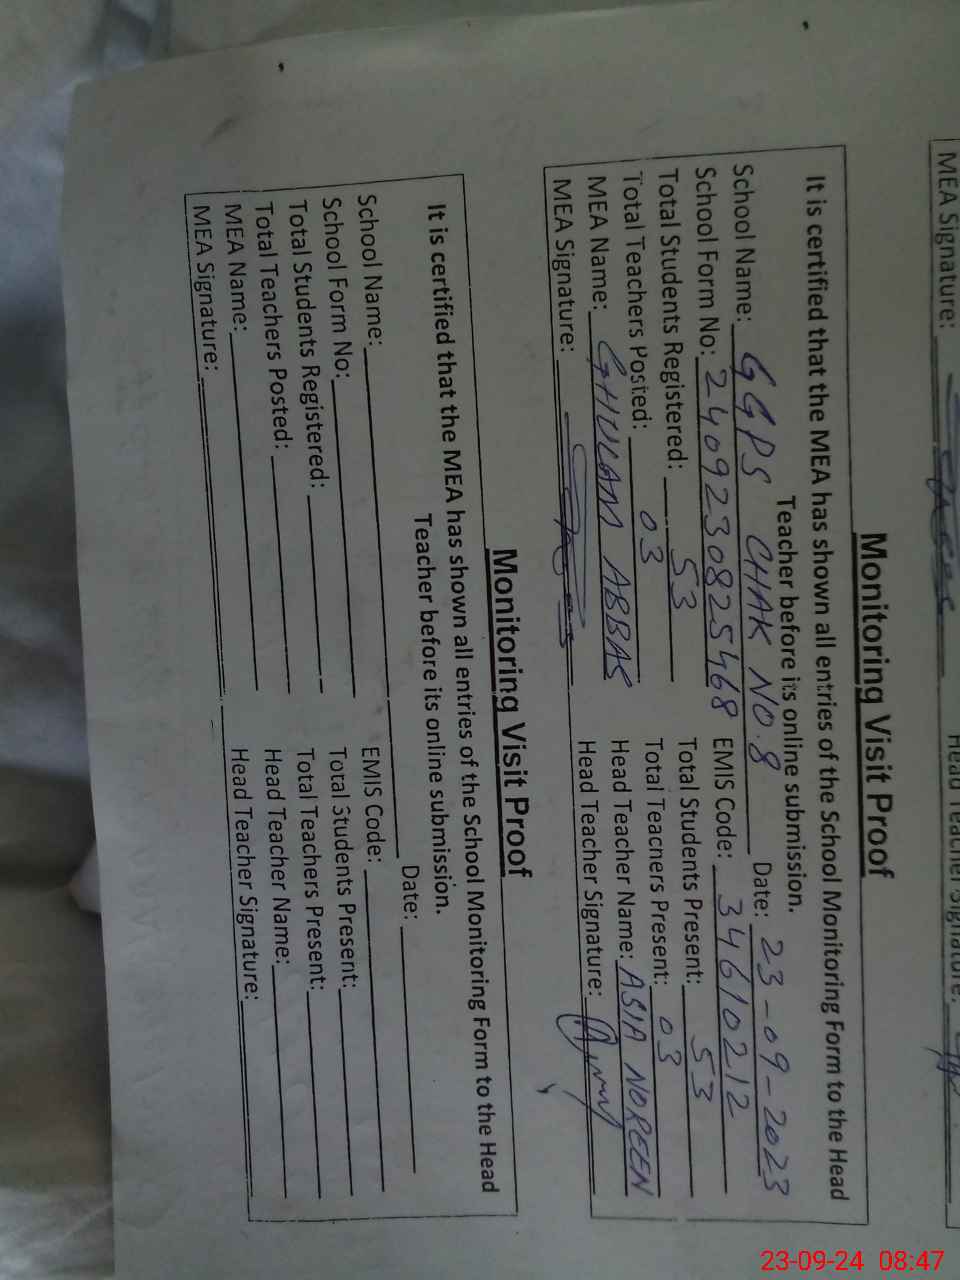 MEA Signature:
Monitoring Visit Proof
It is certified that the MEA has shown all entries of the School Monitoring Form to the Head
Teacher before its online submission.
School Name: GGPS CHAK NO.8 Date: 23-09-2023
School Form No: 2409230825468 EMIS Code: 34610212
Total Students Registered: 53 Total Students Present: 53
Total Teachers Posted: 03 Total Teachers Present: 03
MEA Name: GHULAM ABBAS Head Teacher Name: ASIA NOREEN
MEA Signature: Head Teacher Signature:
Monitoring Visit Proof
It is certified that the MEA has shown all entries of the School Monitoring Form to the Head
Teacher before its online submission.
Date:
School Name:
School Form No: EMIS Code:
Total Students Registered: Total Students Present:
Total Teachers Posted: Total Teachers Present:
MEA Name: Head Teacher Name:
MEA Signature: Head Teacher Signature:
23-09-24 08:47